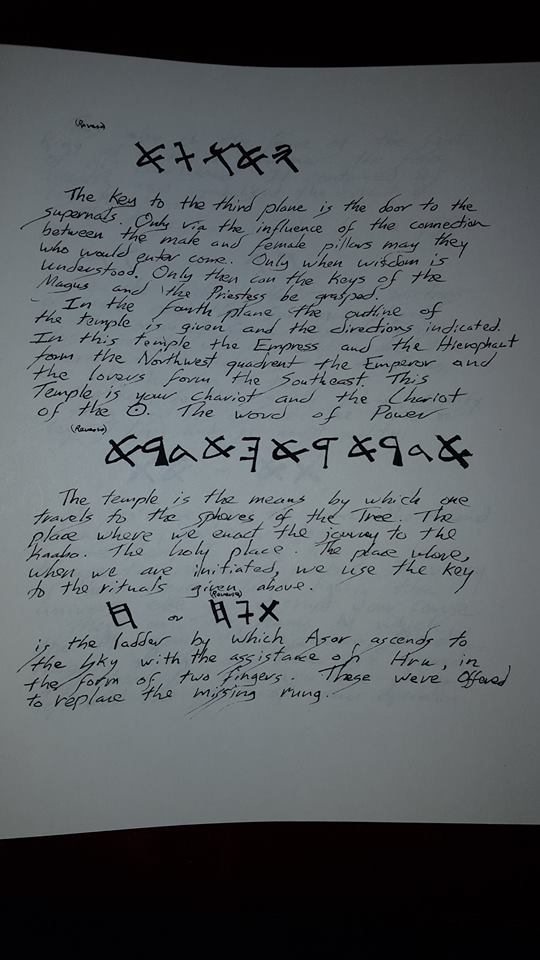 (Reverse)
The Key to the third plane is the door to the
supernals. Only via the influence of the connection
between the male and female pillars may they
who would enter come. Only when wisdom is
understood. Only then can the Keys of the
Magus and the Priestess be grasped.
In the fourth plane the outline of
the temple is given and the directions indicated.
In this temple the Empress and the Hierophant
form the Northwest quadrent the Emperor and
the lovers form the Southeast. This
Temple is your chariot and the Chariot
of the ☉. The word of Power
(Reverse)
The temple is the means by which one
travels to the spheres of the Tree. The
place where we enact the journey to the
kaaba. The holy place. The place where,
when we are initiated, we use the key
to the rituals given above.
(Reverse)
or
is the ladder by which Asar, ascends to
the sky with the assistance of Hru, in
the form of two fingers. These were Offered
to replace the missing rung.